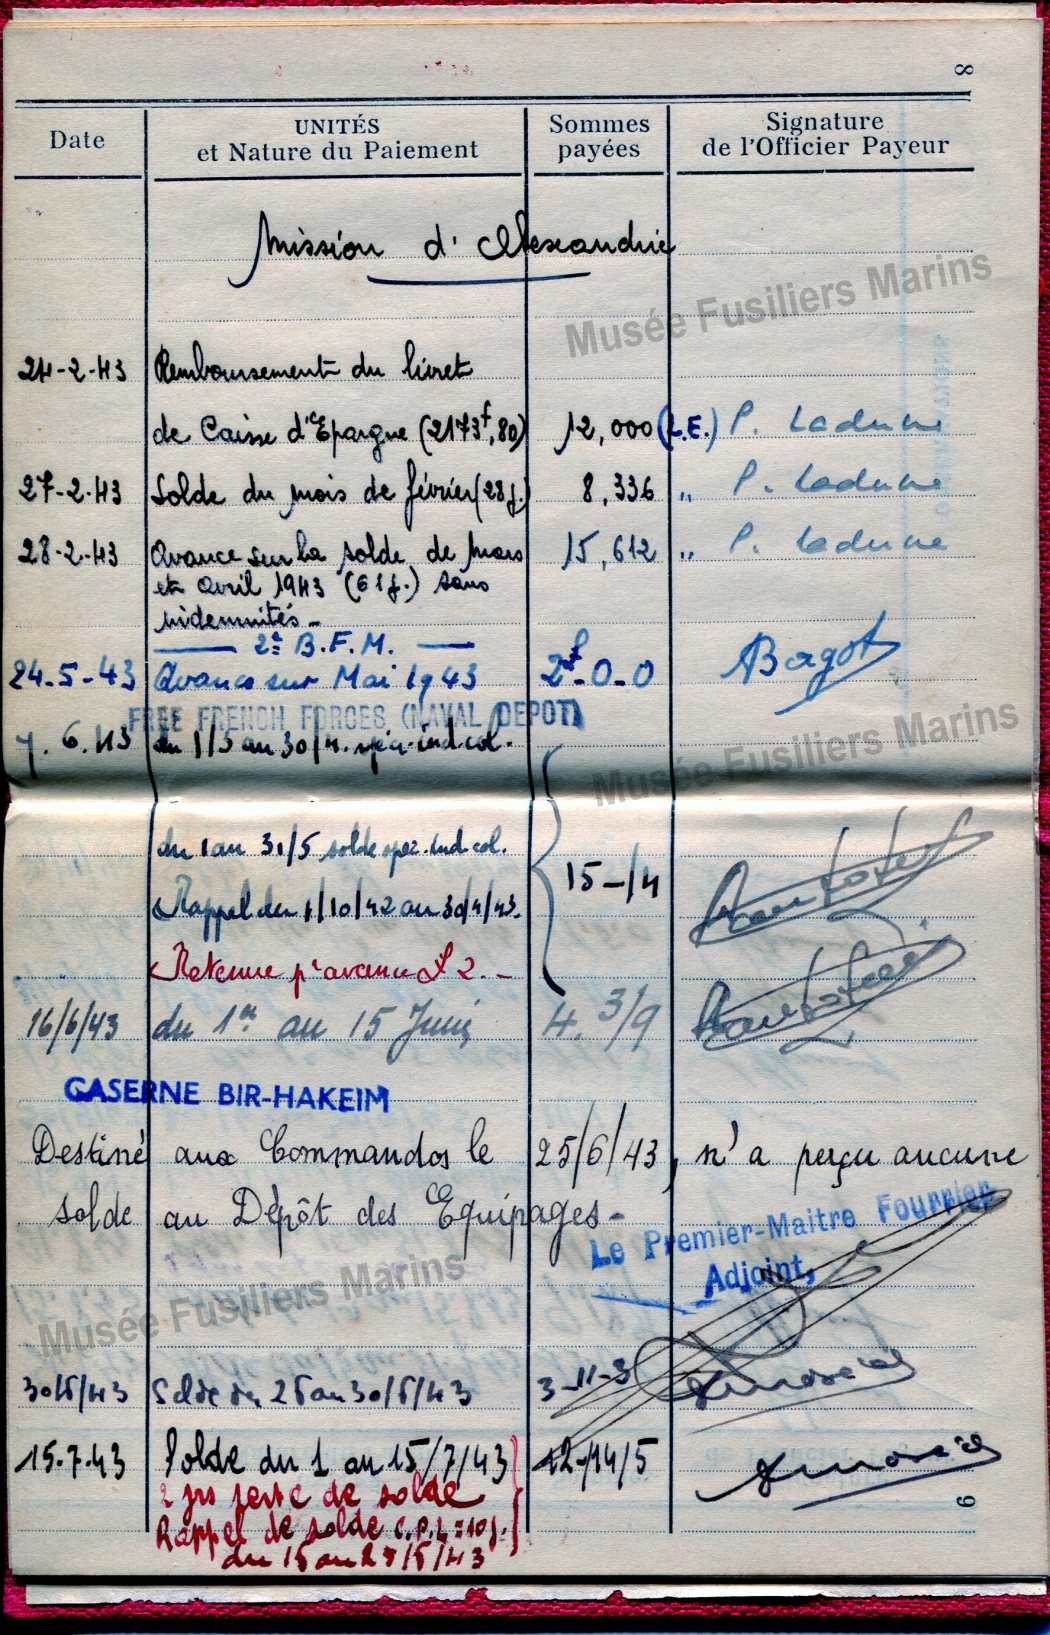 8
Date UNITÉS et Nature du Paiement Sommes payées Signature de l'Officier Payeur
Mission d'Alexandrie
Musée Fusiliers Marins
24-2-43 Remboursement du livret
de Caisse d'Epargne (2173f,80) 12,000 (L.E.) P. Laducne
27-2-43 Solde du mois de février (28 j.) 8,336 " P. Laducne
28-2-43 Avance sur la solde de Mars 15,612 " P. Laducne
et Avril 1943 (61 j.) sans
indemnités -
2e B.F.M.
24-5-43 Avance sur Mai 1943 2£-0-0 Bagot
FREE FRENCH FORCES (NAVAL DEPOT)
7.6.43 du 1/3 au 30/4 ind.col.
Musée Fusiliers Marins
du 1 au 31/5 solde spéc. ind. col.
15-/4
Rappel du 1/10/42 au 30/4/43.
Retenue pr avance £ 2. -
16/6/43 du 1er au 15 Juin 4. 3/9
CASERNE BIR-HAKEIM
Destiné aux Commandos le 25/6/43, n'a perçu aucune
solde au Dépôt des Equipages -
Le Premier-Maitre Fourrier
Adjoint,
Musée Fusiliers Marins
30/6/43 Solde du 26 au 30/6/43 3-11-3
15-7-43 Solde du 1 au 15/7/43 12-14/5
2 jrs perte de solde
Rappel de solde C.P.L = 10 j.
du 15 au
9